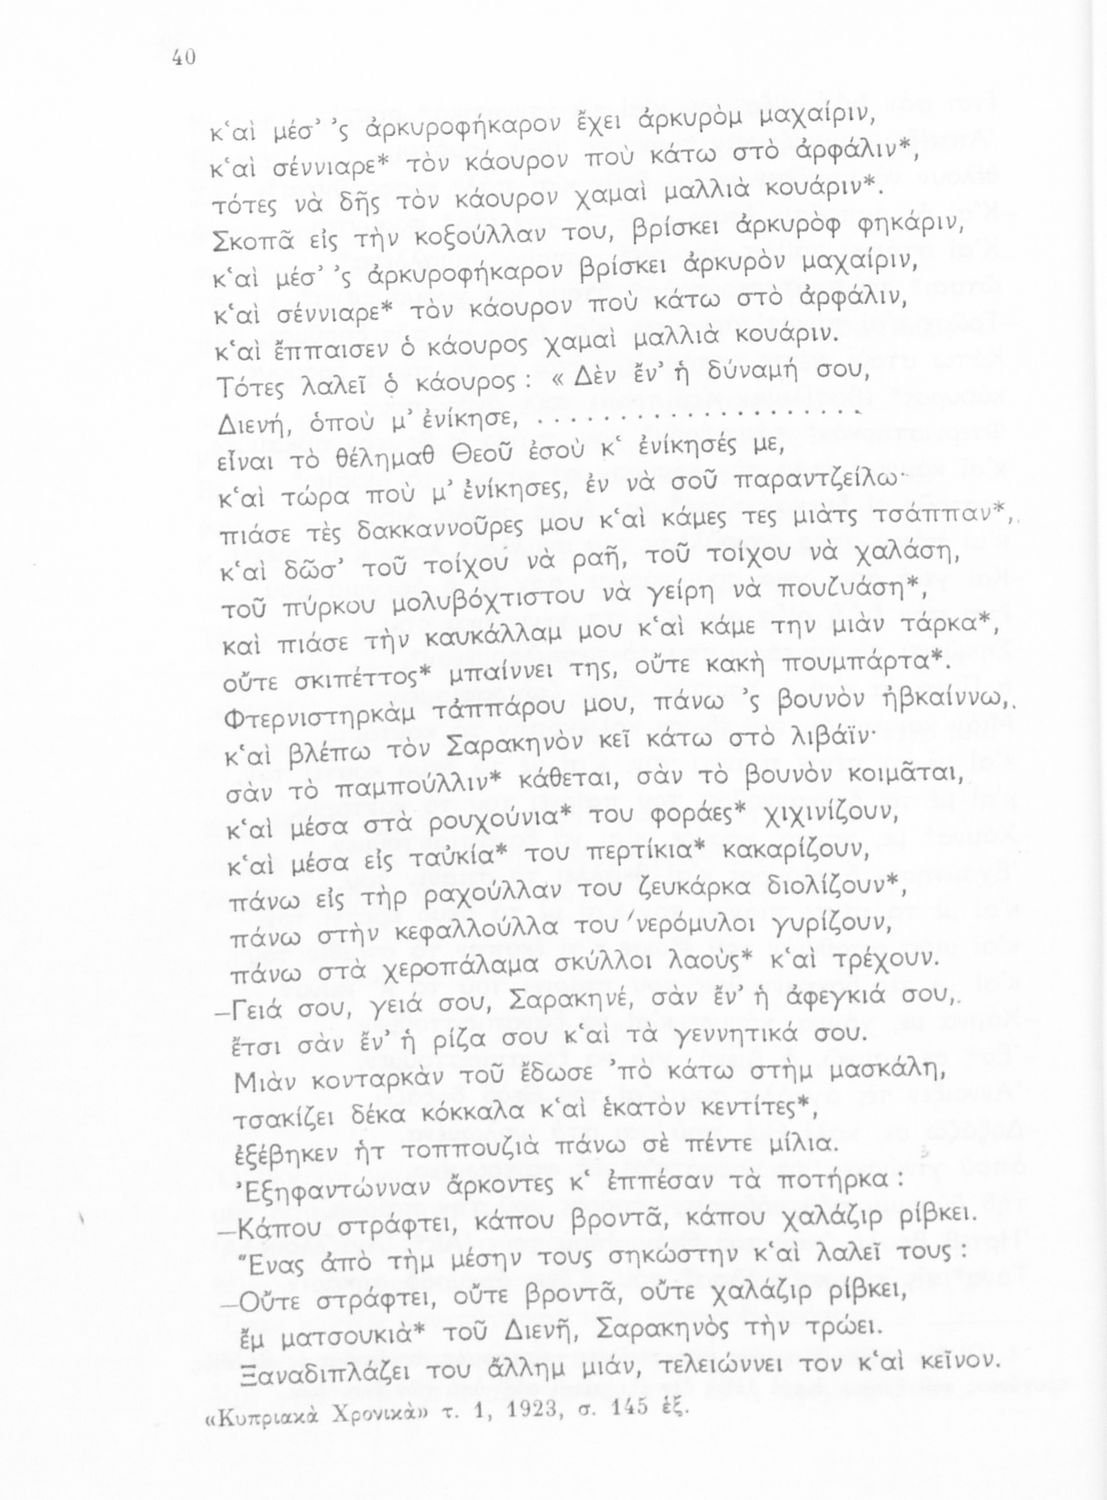 40
κ‘αὶ μέσ’ ’ς ἀρκυροφήκαρον ἔχει ἀρκυρὸμ μαχαίριν,
κ‘αὶ σέννιαρε* τὸν κάουρον ποὺ κάτω στὸ ἀρφάλιν*,
τότες νὰ δῇς τὸν κάουρον χαμαὶ μαλλιὰ κουάριν*.
Σκοπᾶ εἰς τὴν κοξούλλαν του, βρίσκει ἀρκυρὸφ φηκάριν,
κ‘αὶ μέσ’ ’ς ἀρκυροφήκαρον βρίσκει ἀρκυρὸν μαχαίριν,
κ‘αὶ σέννιαρε* τὸν κάουρον ποὺ κάτω στὸ ἀρφάλιν,
κ‘αὶ ἔππαισεν ὁ κάουρος χαμαὶ μαλλιὰ κουάριν.
Τότες λαλεῖ ὁ κάουρος : « Δὲν ἔν’ ἡ δύναμή σου,
Διενή, ὁποὺ μ’ ἐνίκησε, . . . . . . . . . . . . . . . . . . . .
εἶναι τὸ θέλημαθ Θεοῦ ἐσοὺ κ‘ ἐνίκησές με,
κ‘αὶ τώρα ποὺ μ’ ἐνίκησες, ἐν νὰ σοῦ παραντζείλω·
πιάσε τὲς δακκαννοῦρες μου κ‘αὶ κάμες τες μιὰτς τσάππαν*,
κ‘αὶ δῶσ’ τοῦ τοίχου νὰ ραῇ, τοῦ τοίχου νὰ χαλάση,
τοῦ πύρκου μολυβόχτιστου νὰ γείρη νὰ πουζυάση*,
καὶ πιάσε τὴν καυκάλλαμ μου κ‘αὶ κάμε την μιὰν τάρκα*,
οὔτε σκιπέττος* μπαίννει της, οὔτε κακὴ πουμπάρτα*.
Φτερνιστηρκὰμ τἀππάρου μου, πάνω ’ς βουνὸν ἠβκαίννω,
κ‘αὶ βλέπω τὸν Σαρακηνὸν κεῖ κάτω στὸ λιβάϊν·
σὰν τὸ παμπούλλιν* κάθεται, σὰν τὸ βουνὸν κοιμᾶται,
κ‘αὶ μέσα στὰ ρουχούνια* του φοράες* χιχινίζουν,
κ‘αὶ μέσα εἰς ταὐκία* του περτίκια* κακαρίζουν,
πάνω εἰς τὴρ ραχούλλαν του ζευκάρκα διολίζουν*,
πάνω στὴν κεφαλλούλλα του ’νερόμυλοι γυρίζουν,
πάνω στὰ χεροπάλαμα σκύλλοι λαοὺς* κ‘αὶ τρέχουν.
–Γειά σου, γειά σου, Σαρακηνέ, σὰν ἔν’ ἡ ἀφεγκιά σου,
ἔτσι σὰν ἔν’ ἡ ρίζα σου κ‘αὶ τὰ γεννητικά σου.
Μιὰν κονταρκὰν τοῦ ἔδωσε ’πὸ κάτω στὴμ μασκάλη,
τσακίζει δέκα κόκκαλα κ‘αὶ ἑκατὸν κεντίτες*,
ἐξέβηκεν ἡτ τοππουζιὰ πάνω σὲ πέντε μίλια.
Ἐξηφαντώνναν ἄρκοντες κ‘ ἐππέσαν τὰ ποτήρκα :
–Κάπου στράφτει, κάπου βροντᾶ, κάπου χαλάζιρ ρίβκει.
Ἕνας ἀπὸ τὴμ μέσην τους σηκώστην κ‘αὶ λαλεῖ τους :
–Οὔτε στράφτει, οὔτε βροντᾶ, οὔτε χαλάζιρ ρίβκει,
ἔμ ματσουκιὰ* τοῦ Διενῆ, Σαρακηνὸς τὴν τρώει.
Ξαναδιπλάζει του ἄλλημ μιάν, τελειώννει τον κ‘αὶ κεῖνον.
«Κυπριακὰ Χρονικὰ» τ. 1, 1923, σ. 145 ἑξ.